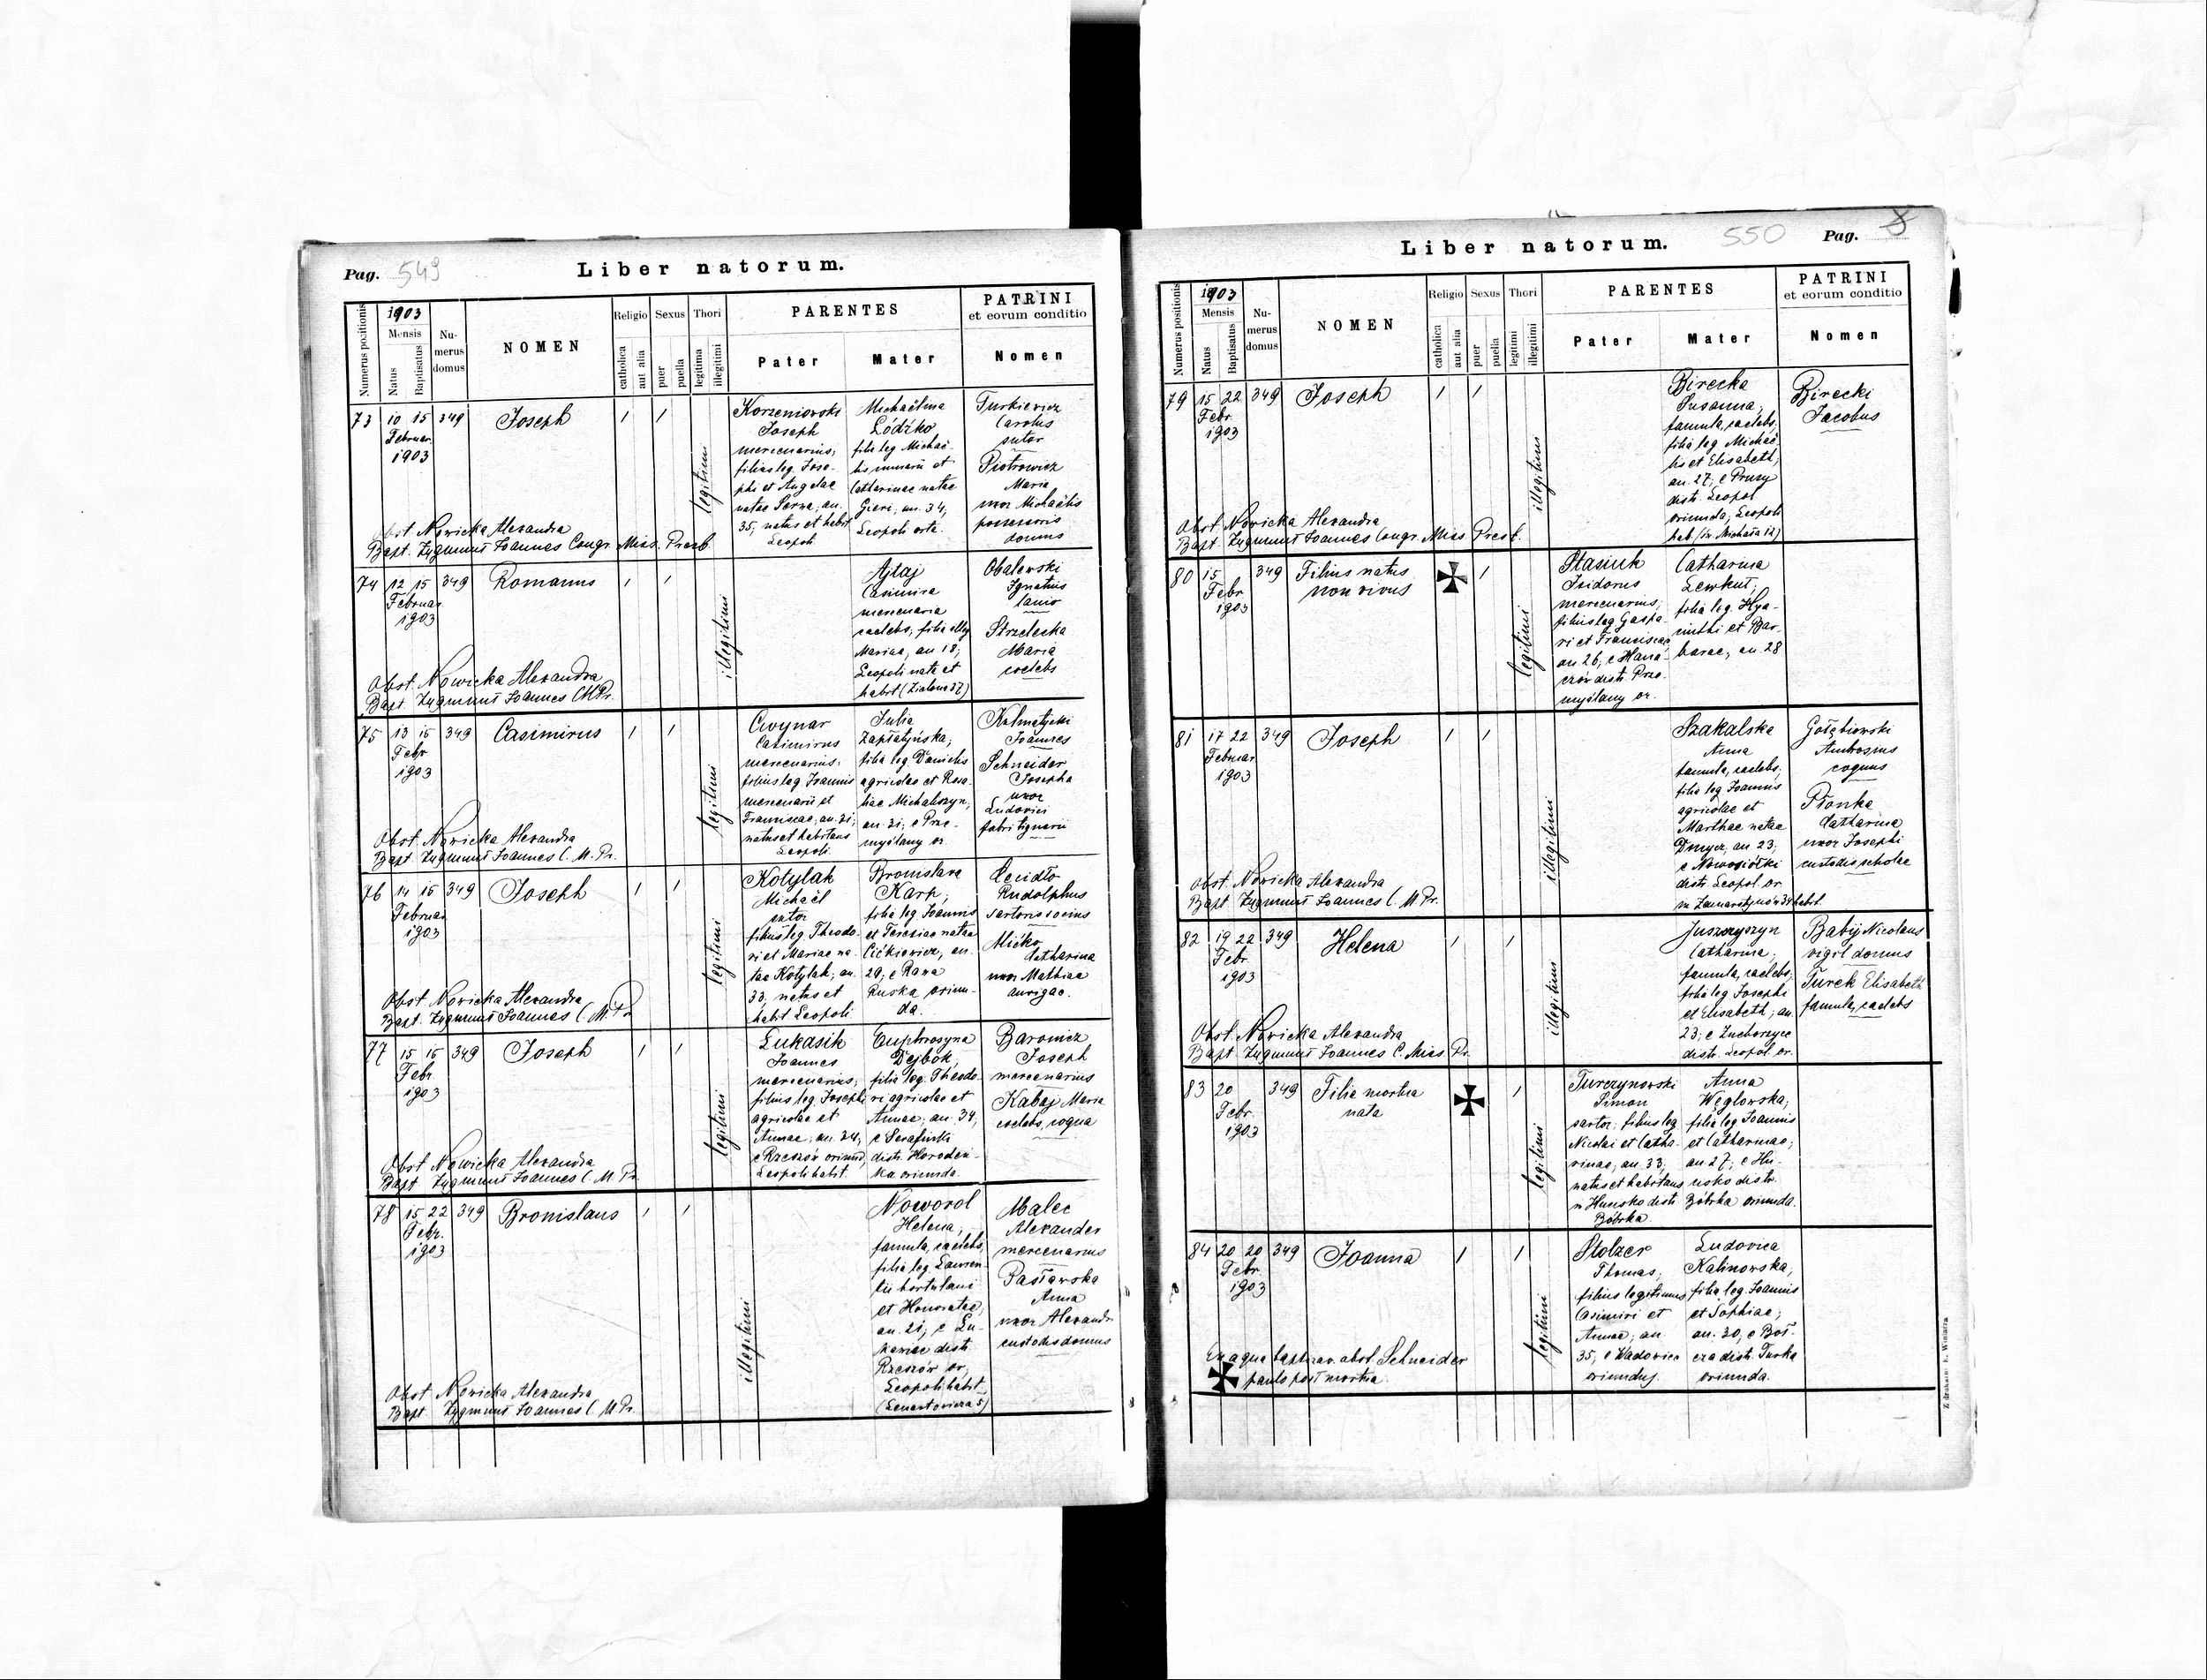 Pag. 549
Liber natorum.
Numerus positionis
1903
Mensis
Natus
Baptisatus
Nu-
merus
domus
NOMEN
Religio
catholica
aut alia
Sexus
puer
puella
Thori
legitima
illegitimi
PARENTES
Pater
Mater
PATRINI
et eorum conditio
Nomen
73 10 15 349 Joseph / /
Februar.
1903
legitimi
Korzeniowski
Joseph
mercenarius,
filius leg. Jose-
phi et Angelae
natae Sarna, an.
35, natus et habit
Leopoli
Michaëlina
Łódżko
filia leg Michaë-
lis murarii et
Catharinae natae
Gieri, an. 34,
Leopoli orta.
Turkiewicz
Carolus
sutor
Piotrowicz
Maria
uxor Michaëlis
possessoris
domus
Obst. Nowicka Alexandra
Bapt. Zygmunt Joannes Congr. Miss. Presb
74 12 15 349 Romanus / /
Februar.
1903
illegitimi
Ajtaj
Casimira
mercenaria
caelebs, filia illeg
Mariae, an 18,
Leopoli nata et
habit (Zielona 37)
Obalewski
Ignatius
lanio
Strzelecka
Maria
coelebs
Obst. Nowicka Alexandra
Bapt. Zygmunt Joannes CMPr.
75 13 15 349 Casimirus / /
Febr
1903
legitimi
Cwynar
Casimirus
mercenarius,
filius leg Joannis
mercenarii et
Franciscae, an. 31,
natus et habitans
Leopoli
Julia
Zapłatyńska,
filia leg. Danielis
agricolae et Rosa-
liae Michaliszyn,
an. 31, e Prze-
myślany or.
Kalmatycki
Joannes
Schneider
Josepha
uxor
Ludovici
fabri tignarii
Obst. Nowicka Alexandra
Bapt. Zygmunt Joannes C. M. Pr.
76 14 15 349 Joseph / /
Februar
1903
legitimi
Kotylak
Michaël
sutor
filius leg. Theodo-
ri et Mariae na-
tae Kotylak, an.
33, natus et
habit Leopoli
Bronislava
Karp,
filia leg Joannis
et Teresiae natae
Cićkiewicz, an.
29, e Rawa
Ruska oriun-
da.
Rudolphus
sartoris socius
Mićko
Catharina
uxor Mathiae
aurigae.
Obst Nowicka Alexandra
Bapt. Zygmunt Joannes C. M. Pr
77 15 15 349 Joseph / /
Febr.
1903
legitimi
Łukasik
Joannes
mercenarius,
filius leg. Josephi
agricolae et
Annae, an. 34,
e Rzeszów oriund,
Leopoli habit.
Euphrosyna
Dejbók,
filia leg. Theodo-
ri agricolae et
Annae, an. 34,
e Serafińki
distr. Horoden-
ka oriunda.
Baronicz
Joseph
mercenarius
Kabaj Maria
coelebs, coqua
Obst Nowicka Alexandra
Bapt Zygmunt Joannes C. M. Pr.
78 15 22 349 Bronislaus / /
Febr.
1903
illegitimi
Noworol
Helena,
famula, caelebs,
filia leg. Lauren-
tii hortulani
et Honoratae,
an. 21, e Łu-
kawiec distr.
Rzeszów or,
Leopoli habit
(Lenartowicza 5)
Malec
Alexander
mercenarius
Pasławska
Anna
uxor Alexandri
custodis domus
Obst Nowicka Alexandra
Bapt. Zygmunt Joannes C. M Pr.
Liber natorum.
550 Pag.
Numerus positionis
1903
Mensis
Natus
Baptisatus
Nu-
merus
domus
NOMEN
Religio
catholica
aut alia
Sexus
puer
puella
Thori
legitimi
illegitimi
PARENTES
Pater
Mater
PATRINI
et eorum conditio
Nomen
79 15 22 349 Joseph / /
Febr
1903
illegitimi
Birecka
Susanna,
famula, caelebs,
filia leg Michaë-
lis et Elisabeth,
an. 27, e Prusy
distr. Leopol
oriunda, Leopoli
hab (św Michała 12)
Birecki
Jacobus
Obst. Nowicka Alexandra
Bapt. Zygmunt Joannes Congr. Miss Presb.
80 15 349 Filius natus /
Febr non vivus
1903
legitimi
Stasiuk
Isidorus
mercenarius,
filius leg Gaspa-
ri et Franciscae,
an 26, e Hana-
czów distr. Prze-
myślany or.
Catharina
Lewkut,
filia leg. Hya-
cinthi et Bar-
barae, an. 28
81 17 22 349 Joseph / /
Februar
1903
illegitimi
Szakalska
Anna
famula, caelebs,
filia leg Joannis
agricolae et
Marthae natae
Dmyer, an 23,
e Nowosiółki
distr Leopol or
in Zamarstynów 34 habit.
Gołębiowski
Ambrosius
coquus
Płonka
Catharina
uxor Josephi
custodis scholae
Obst. Nowicka Alexandra
Bapt Zygmunt Joannes C. M. Pr.
82 19 22 349 Helena / /
Febr.
1903
illegitimi
Juszczyszyn
Catharina,
famula, caelebs,
filia leg Josephi
et Elisabeth, an.
23, e Zuchorzyce
distr. Leopol or.
Babij Nicolaus
vigil domus
Turek Elisabeth
famula, caelebs
Obst. Nowicka Alexandra
Bapt. Zygmunt Joannes C. Miss. Pr.
83 20 349 Filia mortua /
Febr. nata
1903
legitimi
Turczynowski
Simon
sartor, filius leg
Nicolai et Catha-
rinae, an. 33,
natus et habitans
in Hunisko distr
Bóbrka.
Anna
Węglowska,
filia leg Joannis
et Catharinae,
an. 27, e Hu-
nisko distr.
Bóbrka oriunda.
84 20 20 349 Joanna / /
Febr.
1903
legitimi
Stolzer
Thomas,
filius legitimus
Casimiri et
Annae, an.
35, e Wadowice
oriundus.
Ludovica
Kalinowska,
filia leg. Joannis
et Sophiae,
an. 30, e
distr. Turka
oriunda.
Ex aqua baptizav. obst. Schneider
paulo post mortua
Z drukarni E. Winiarza